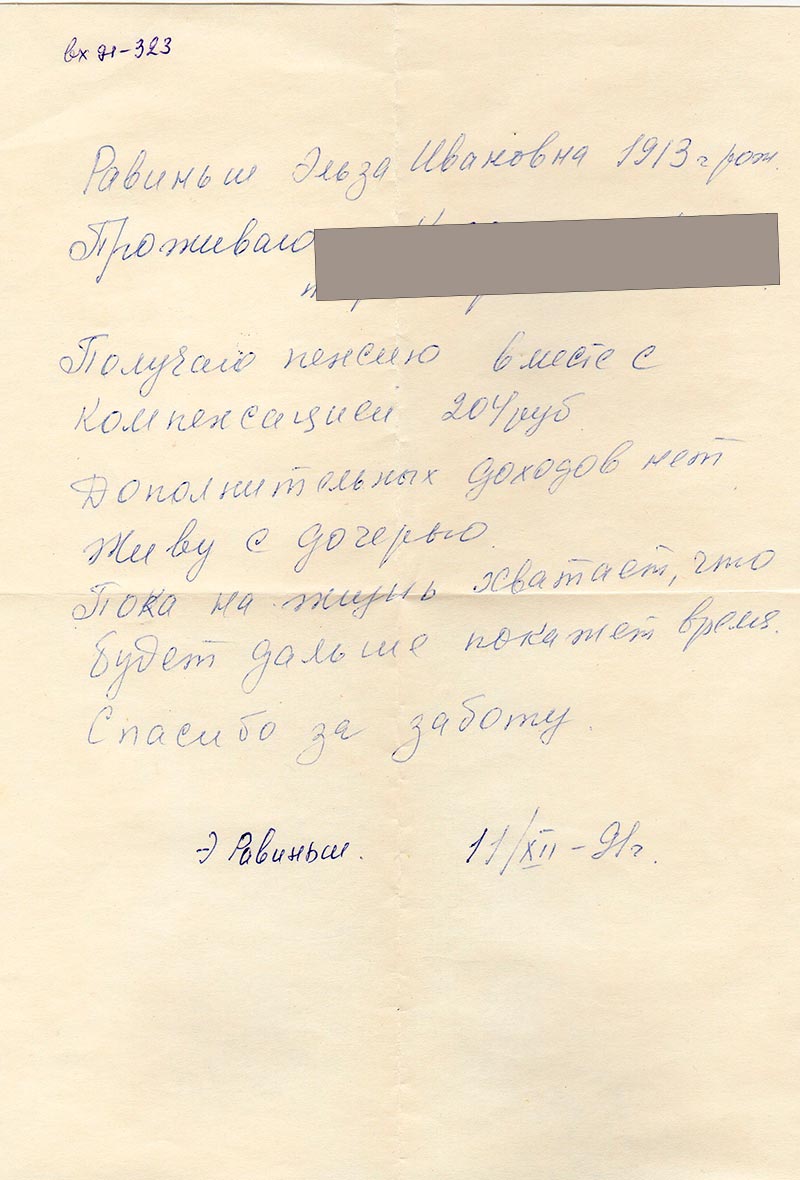 вх 91-323
Равиньш Эльза Ивановна 1913 г рож.
Проживаю
Получаю пенсию вместе с
компенсацией 204 руб.
Дополнительных доходов нет.
Живу с дочерью.
Пока на жизнь хватает, что
будет дальше покажет время.
Спасибо за заботу.
Э Равиньш. 11/XII – 91 г.